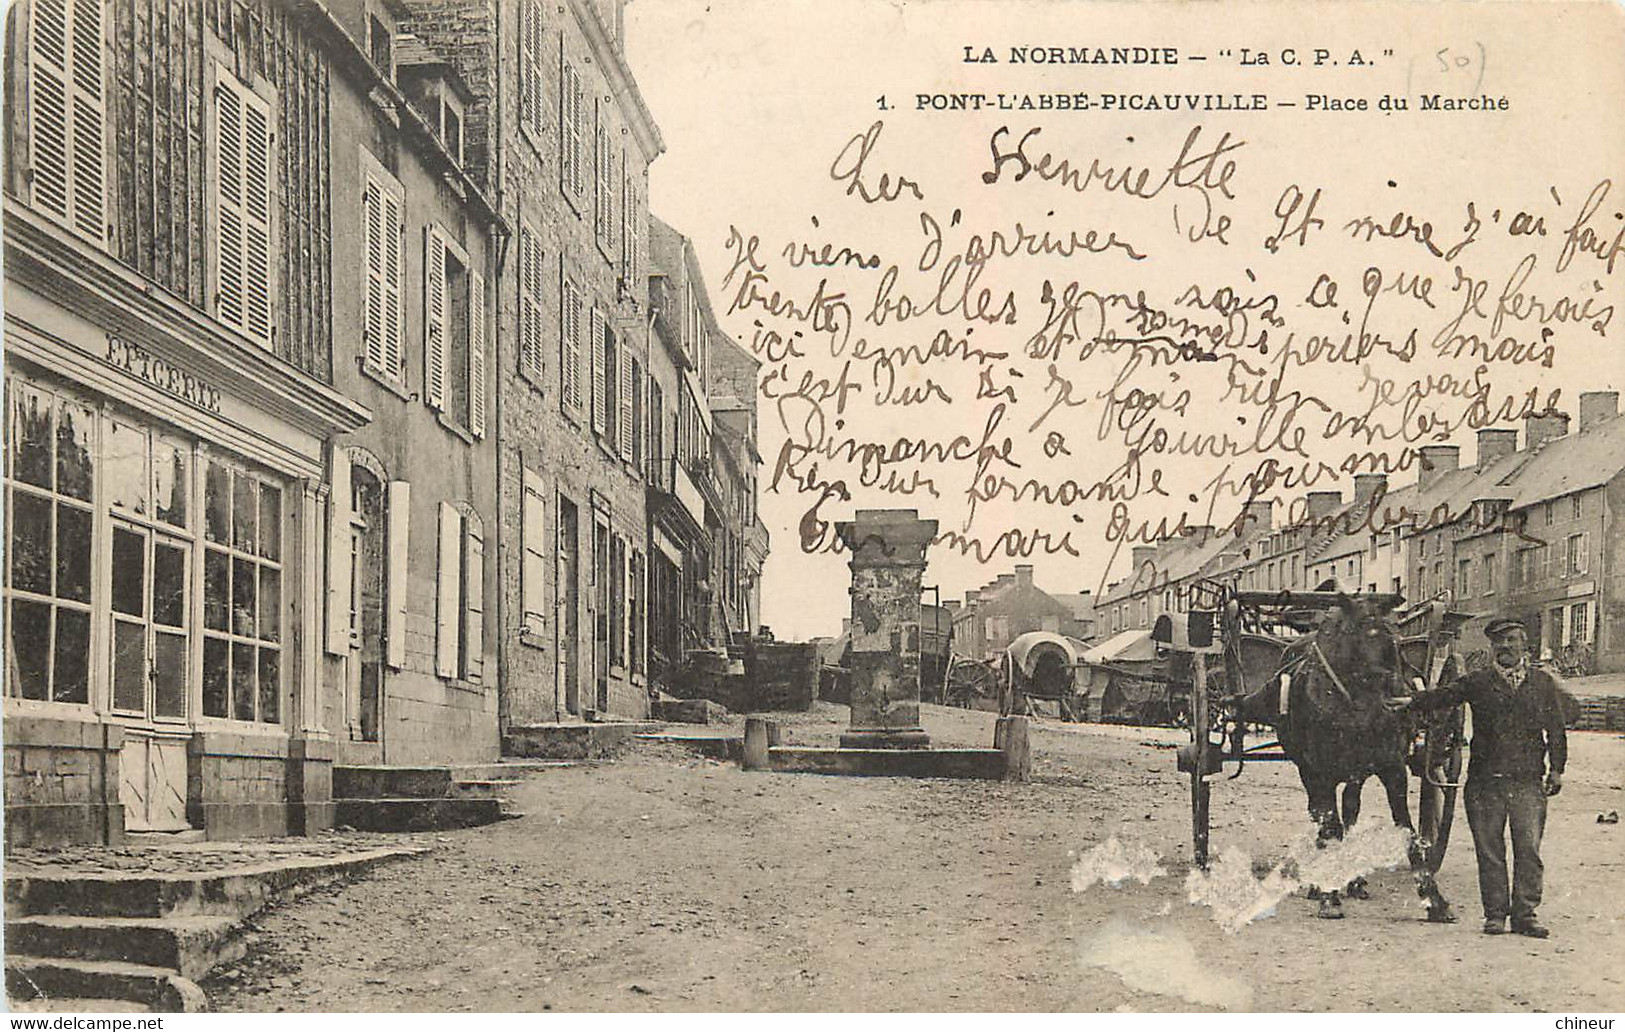 LA NORMANDIE — "La C. P. A." (50)
1. PONT-L'ABBÉ-PICAUVILLE — Place du Marché
Cher Henriette
Je viens d'arriver de St mère j'ai fait
trente balles je me sais ce que je ferais
samedi
ici demain et periers mais
c'est dur si je fais rien je vous
Dimanche a Gouville embrasse
sur fernande pour moi
mari qui t'embrasse
ÉPICERIE
chineur